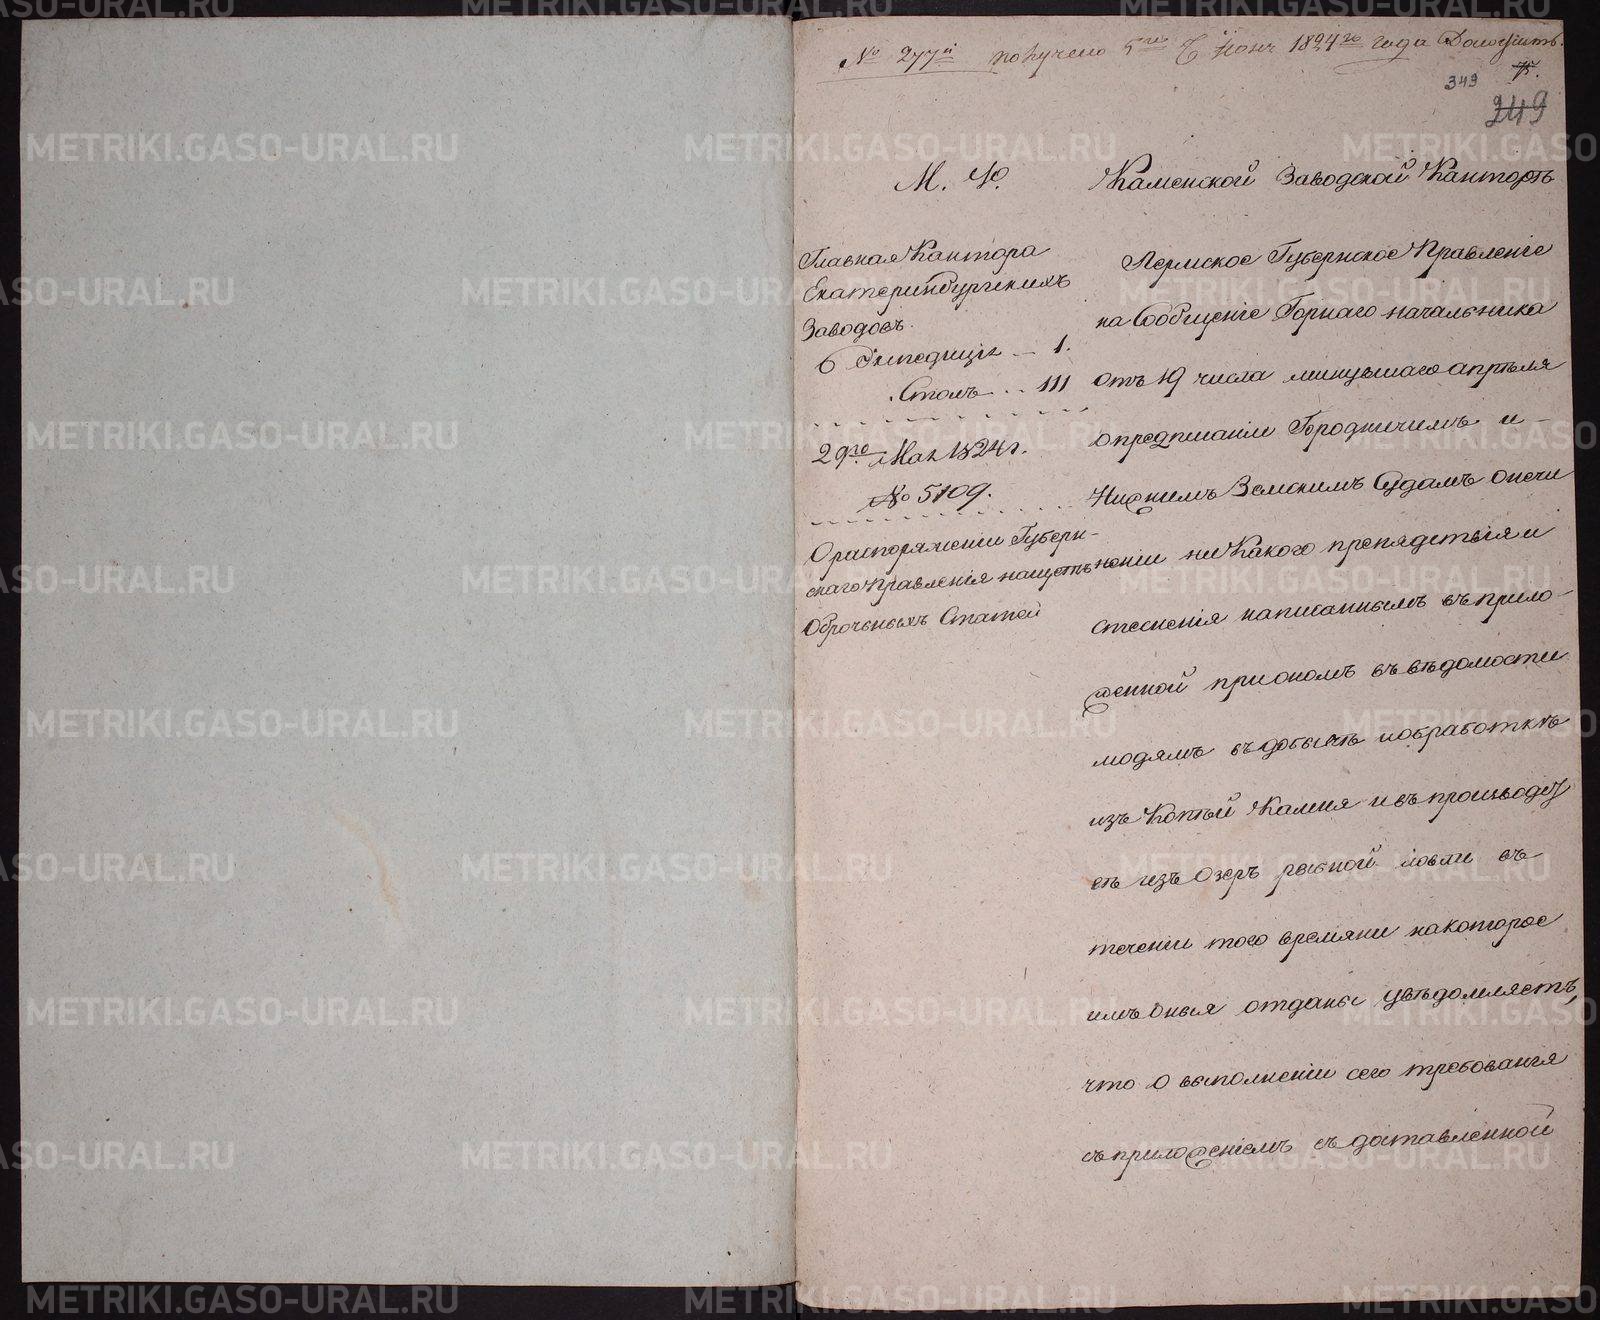 № 277й получено 5го Июня 1824го года Доложить.
75.
343
249
М. Ф.
Главная Кантора
Екатеринбургскихъ
Заводовъ.
Экспедицiя 1.
Столъ III
29го Мая 1824г.
№ 5109.
О распоряженiи Губерн-
скаго Правленiя нащетъ
Оброчныхъ Статей
Каменской Заводской Канторѣ
Пермское Губернское Правленiе
на Сообщенiе Горнаго начальника
отъ 19 числа минувшаго апрѣля
опредписанiи Городничимъ и
Нижнимъ Земскимъ Судамъ онечи
ненiи ни Какого препядствiя и
стесненiя написаннымъ въ прило-
женной приономъ въ вѣдомости
людямъ въ добычѣ иобработкѣ
изъ Копѣй Камня и въ производ
въ изъ Озеръ рыбной ловли въ
теченiи того времяни на которое
имъ Оныя отданы увѣдомляетъ,
что о выполненiи сего требованiя
съ приложенiемъ съ доставленной
METRIKI.GASO-URAL.RU